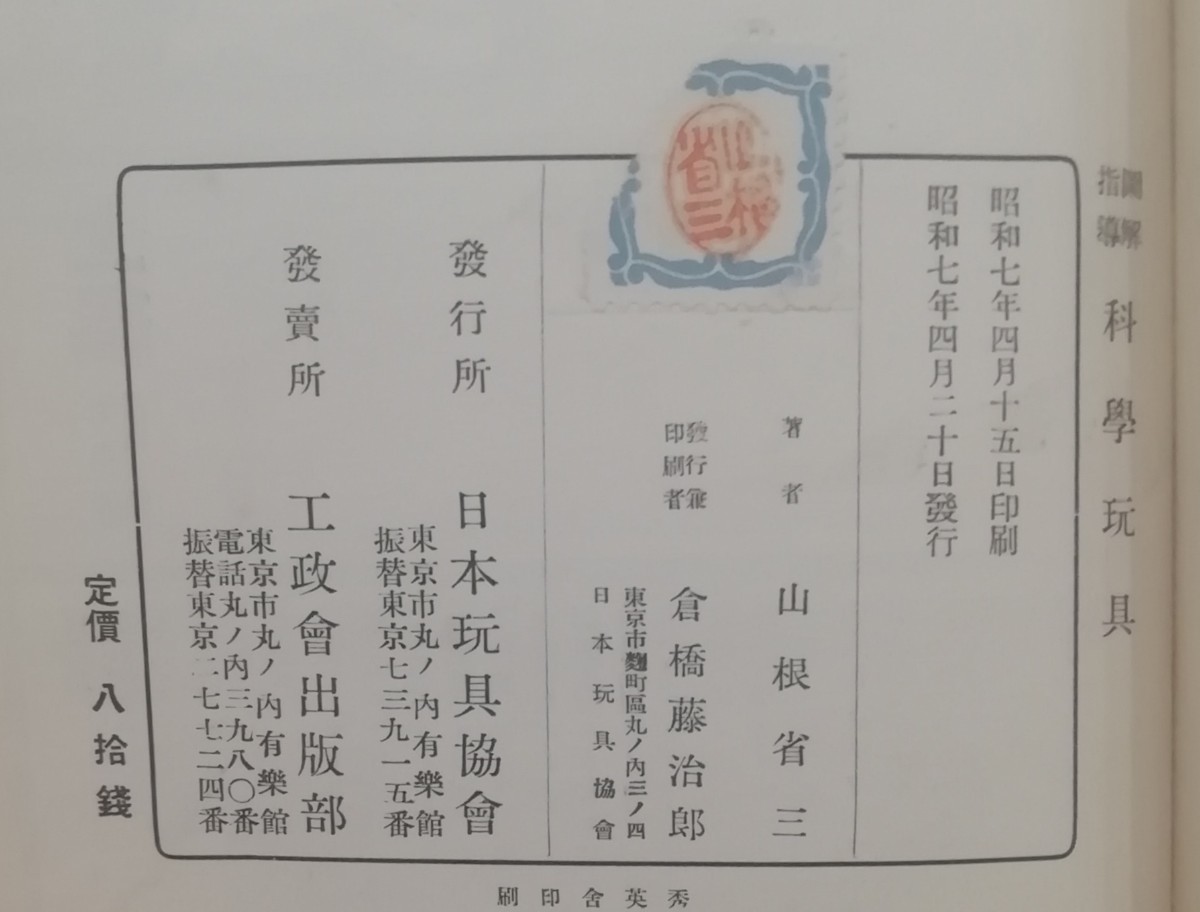 圖解
指導
科學玩具
昭和七年四月十五日印刷
昭和七年四月二十日發行
山根
省三
著者
山根省三
發行兼
印刷者
倉橋藤治郎
東京市麴町區丸ノ內三ノ四
日本玩具協會
發行所
日本玩具協會
東京市丸ノ內有樂館
振替東京七三九一五番
發賣所
工政會出版部
東京市丸ノ內有樂館
電話丸ノ內三九八〇番
振替東京二七七二四番
定價 八拾錢
秀英舍印刷